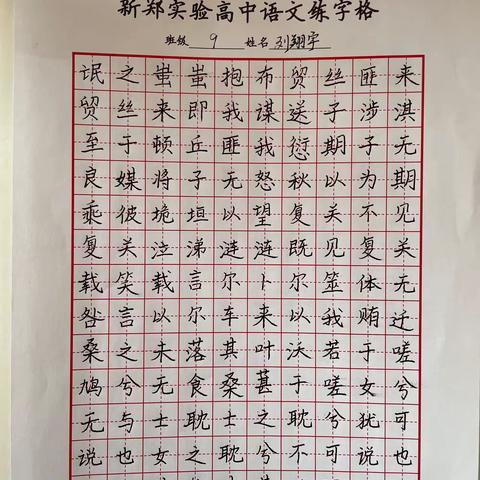 新郑实验高中语文练字格
班级 9 姓名 刘翔宇
氓之蚩蚩抱布贸丝匪来
贸丝来即我谋送子涉淇
至于顿丘匪我愆期子无
良媒将子无怒秋以为期
乘彼垝垣以望复关不见
复关泣涕涟涟既见复关
载笑载言尔卜尔筮体无
咎言以尔车来以我贿迁
桑之未落其叶沃若于嗟
鸠兮无食桑葚于嗟女兮
无与士耽士之耽兮犹可
说也女之耽兮不可说也